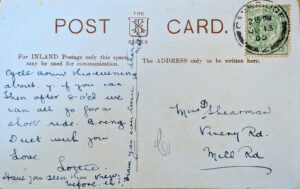 POST CARD.
THE
SERIES
For INLAND Postage only this space may be used for communication.
The ADDRESS only to be written here.
CAMBRIDGE
2.15 PM
13
Cycle down this evening
about 7. if you can
Then after 8 o'cl we
can all go for a
short ride. Bring
Duet with you
Love.
Lottie.
Have you seen this view
before.
Miss D Shearman
Vinery Rd.
Mill Rd